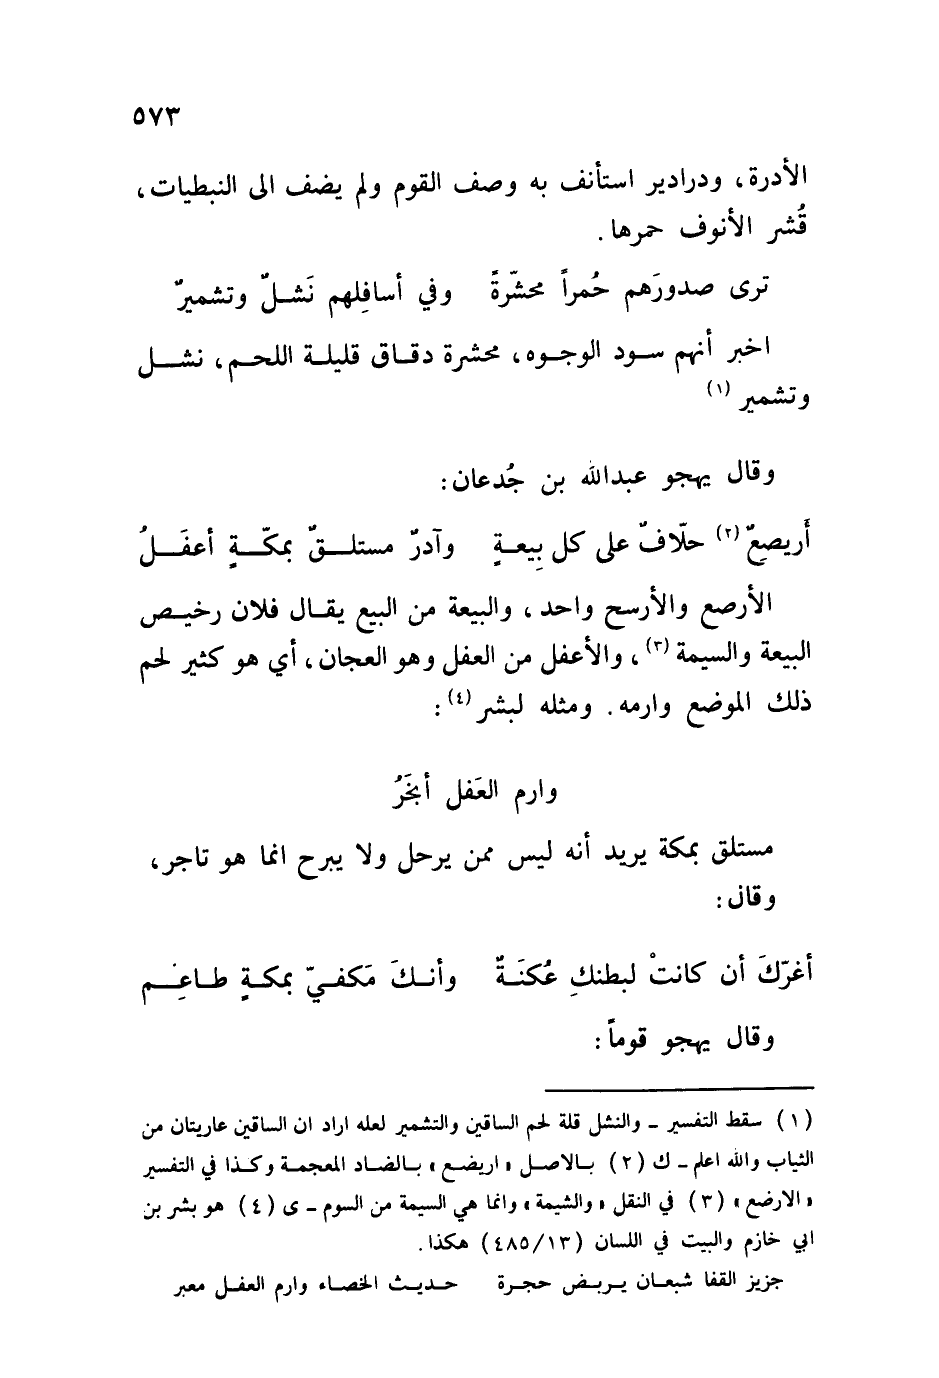 ٥٧٣
الأدرة، ودرادير استأنف به وصف القوم ولم يضف الى النبطيات،
قُشر الأنوف حمرها.
ترى صدورَهم حُمراً محشّرةً وفي أسافِلهم نَشلٌ وتشميرٌ
اخبر أنهم سود الوجوه، محشرة دقاق قليلة اللحم، نشل
وتشمير (١)
وقال يهجو عبدالله بن جُدعان:
أَريصِعٌ (٢) حلّافٌ على كل بِيعةٍ وآدرٌ مستلقٌ بمكّةٍ أعفَلُ
الأرصع والأرسح واحد، والبيعة من البيع يقال فلان رخيص
البيعة والسيمة (٣)، والأعفل من العفل وهو العجان، أي هو كثير لحم
ذلك الموضع وارمه. ومثله لبشر (٤):
وارم العَفل أبخَرُ
مستلق بمكة يريد أنه ليس ممن يرحل ولا يبرح انما هو تاجر،
وقال:
أغرّكَ أن كانتْ لبطنكِ عُكنَةٌ وأنكَ مَكفيّ بمكةٍ طاعِم
وقال يهجو قوماً:
(١) سقط التفسير ـ والنشل قلة لحم الساقين والتشمير لعله اراد ان الساقين عاريتان من
الثياب والله اعلم ـ ك (٢) بالاصل «اريضع» بالضاد المعجمة وكذا في التفسير
«الارضع» (٣) في النقل «والشيمة» وانما هي السيمة من السوم ـ ى (٤) هو بشر بن
ابي خازم والبيت في اللسان (٤٨٥/١٣) هكذا.
جزيز القفا شبعان يربض حجرة حديث الخصاء وارم العفل معبر